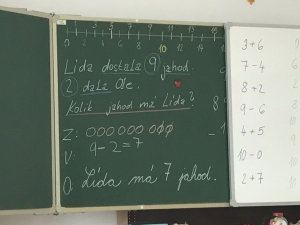 0 2 4 6 8 10 12 14 16
Lída dostala 9 jahod.
2 dala
Kolik jahod má Lída?
Z: OOOOOOOØØ
V: 9 - 2 = 7
O: Lída má 7 jahod.
3 + 6
7 - 4
8 + 2
9 - 6
4 + 5
10 - 0
2 + 7